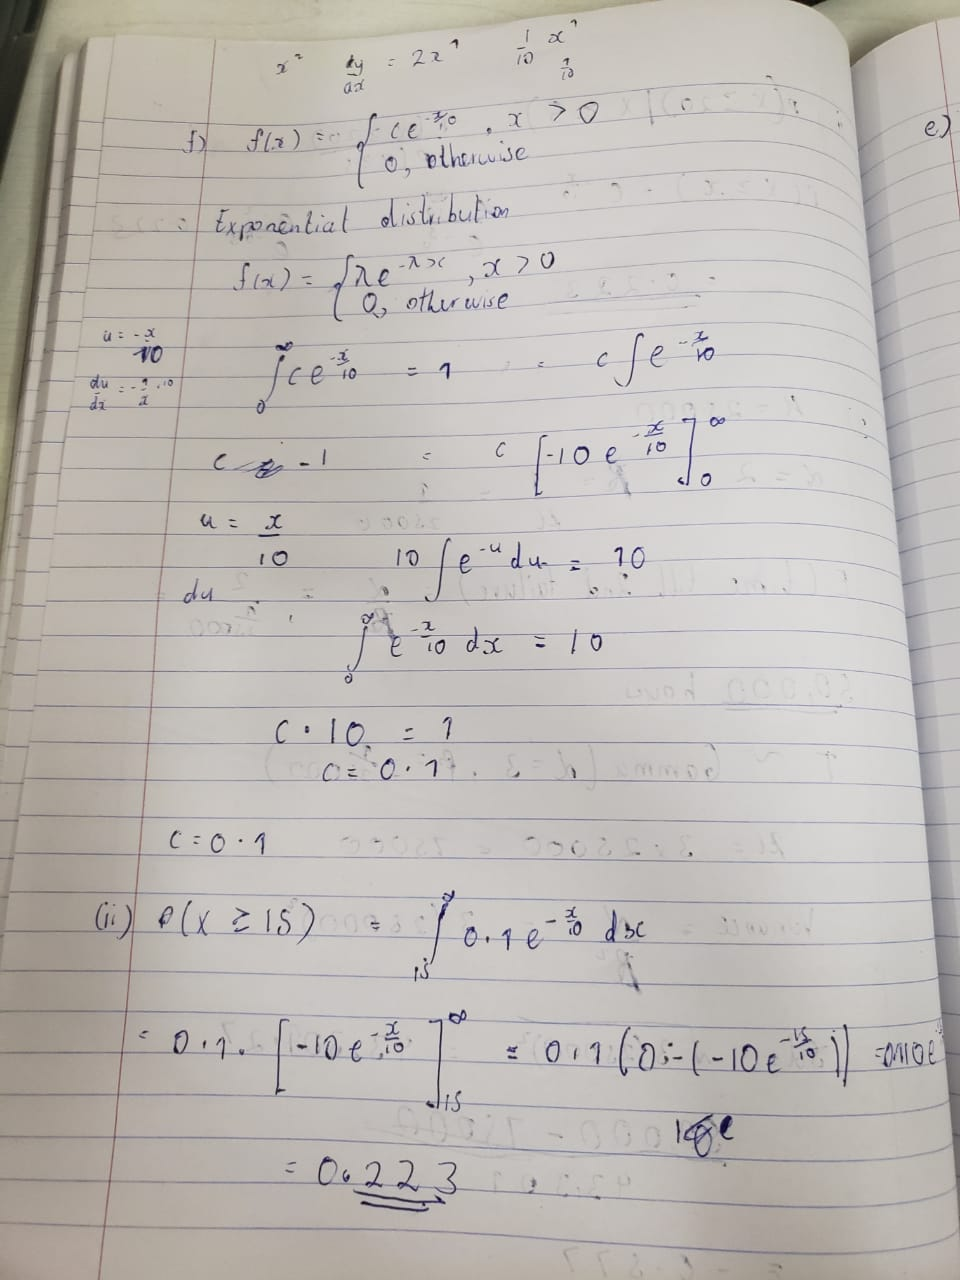 x² dy/dx = 2x¹ 1/10 x¹
1/10
f) f(x) = { ce^(-x/10), x > 0
0, otherwise
Exponential distribution
f(x) = { λe^(-λx), x > 0
0, otherwise
u = -x/10
∫₀^∞ ce^(-x/10) = 1 = c∫e^(-x/10)
du/dx = -1/x · 10
c - 1 = c [-10e^(-x/10)]₀^∞
u = x/10
10 ∫e^(-u) du = 10
du
∫₀^∞ e^(-x/10) dx = 10
c · 10 = 1
c = 0.1
c = 0.1
(ii) P(X ≥ 15) = ∫₁₅^∞ 0.1e^(-x/10) dx
= 0.1 · [-10e^(-x/10)]₁₅^∞ = 0.1(0 - (-10e^(-15/10)))
= 0.223
e)